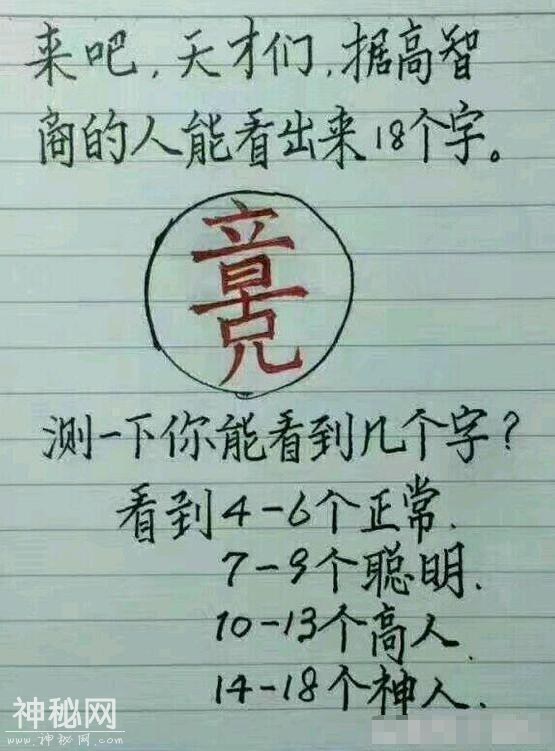 来吧,天才们,据高智
商的人能看出来18个字。
测一下你能看到几个字?
看到4-6个正常.
7-9个聪明.
10-13个高人.
14-18个神人.
神秘网
www.shenmiw.com